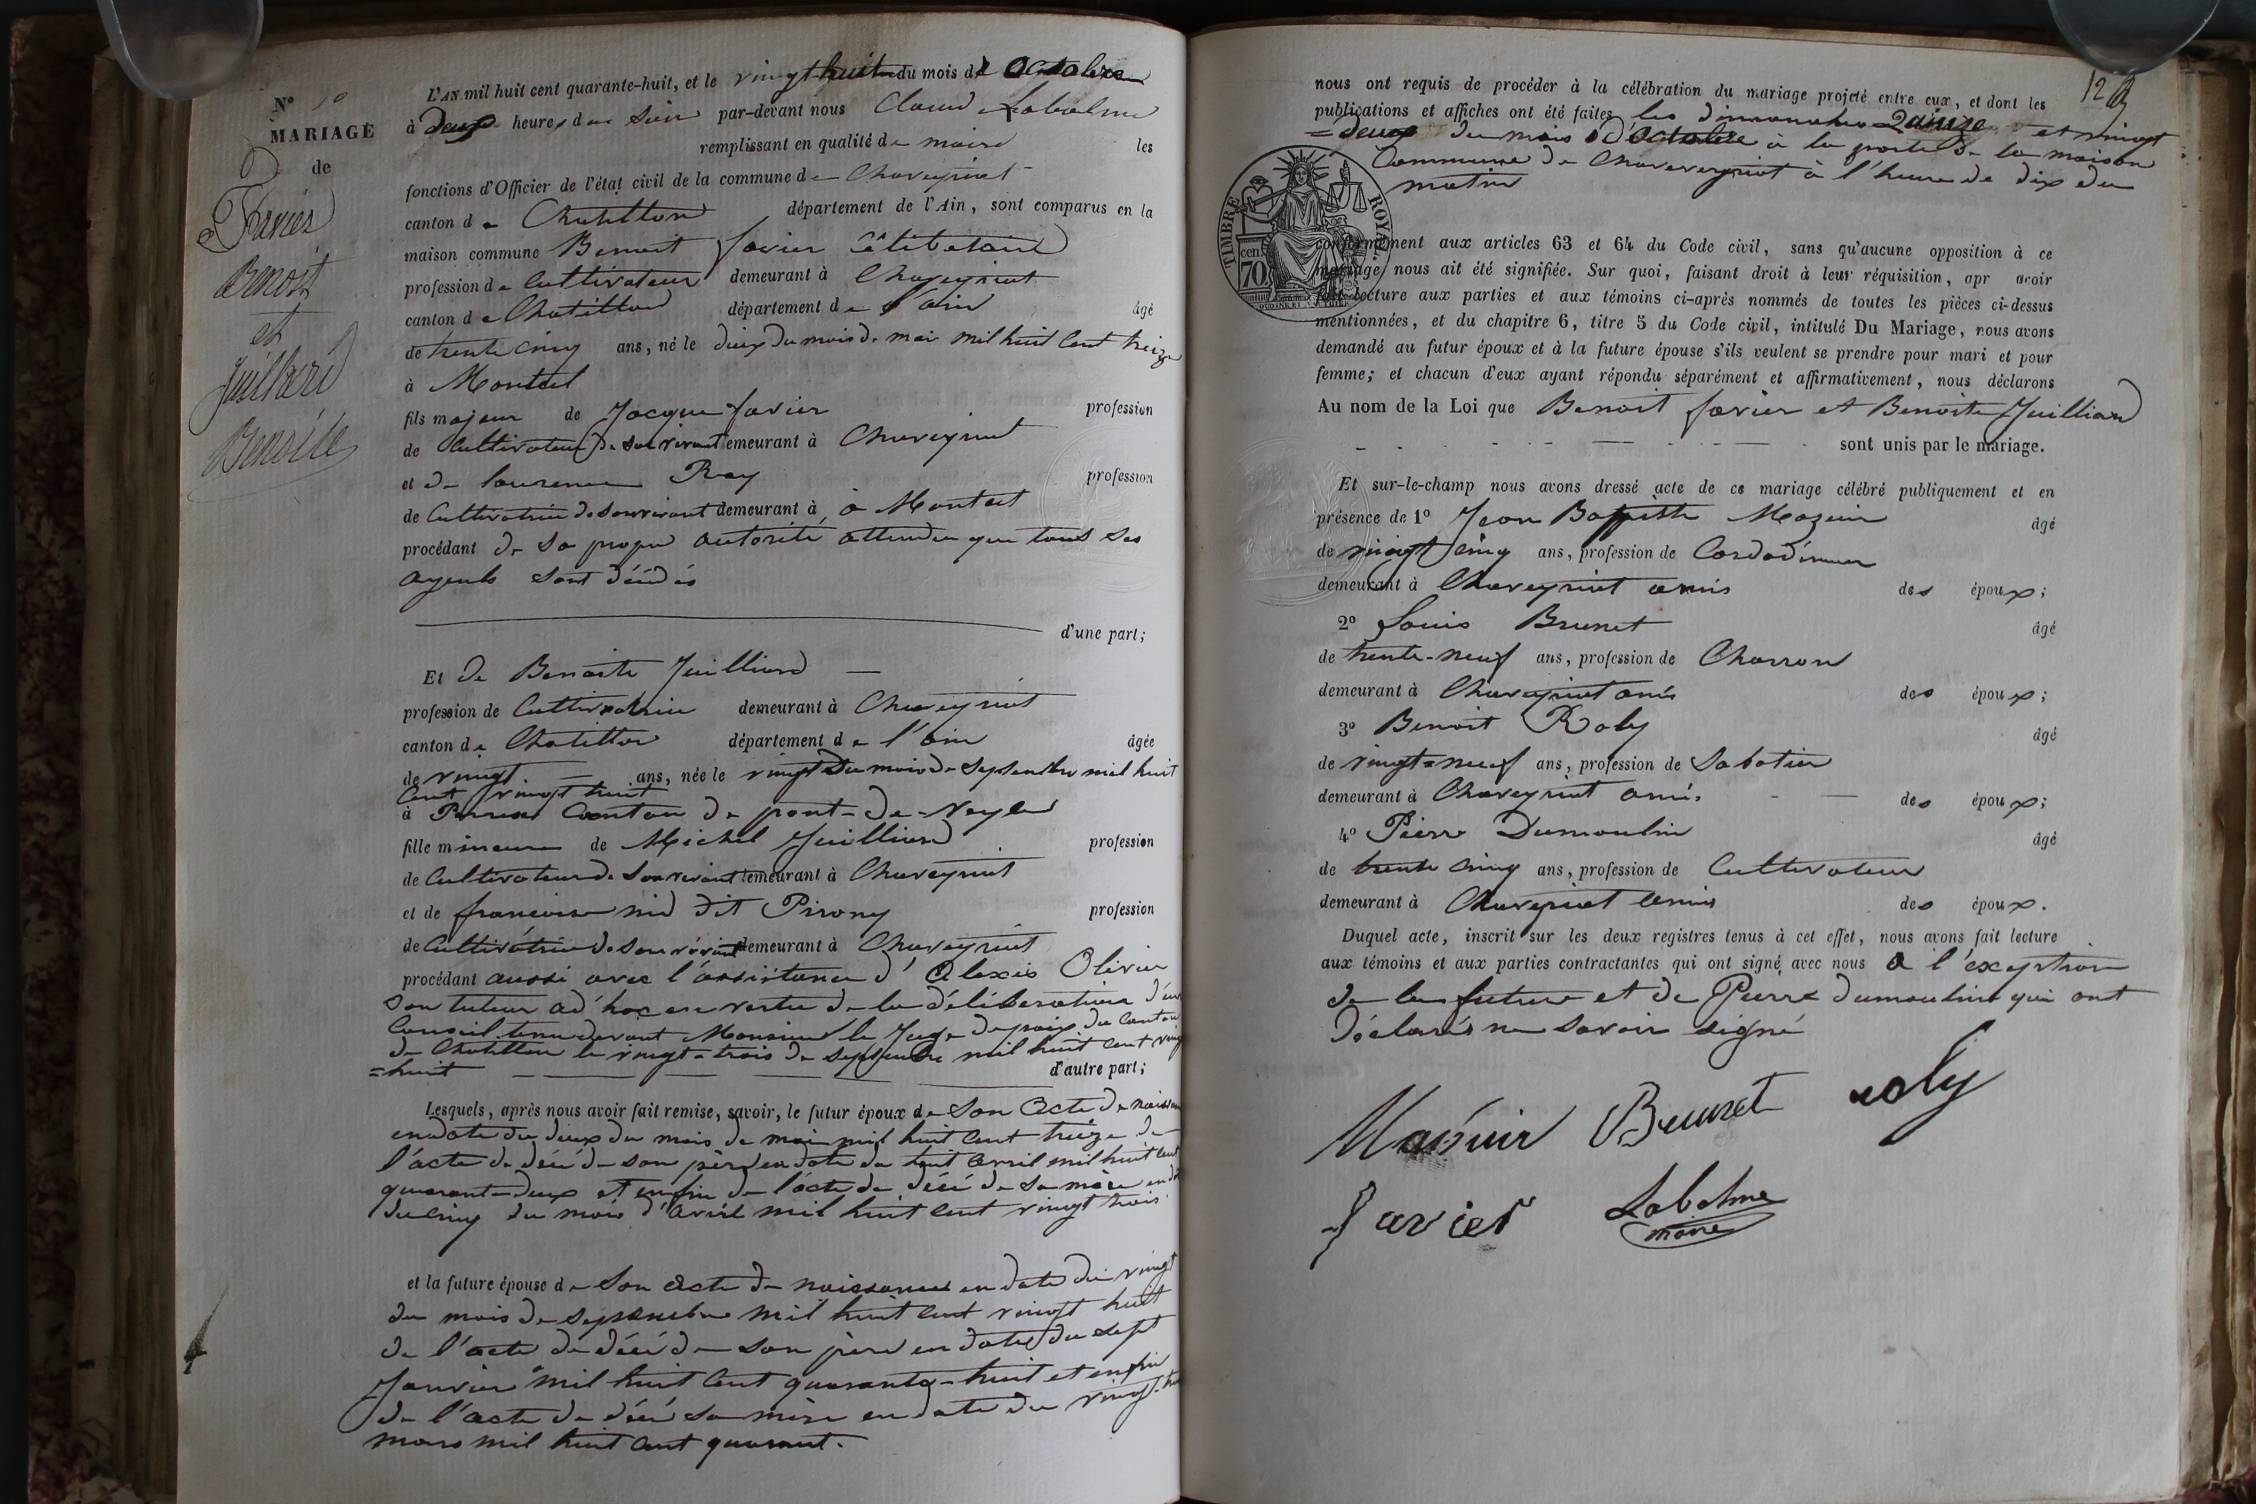 N° 10
MARIAGE
de
Favier
Benoit
et
Juilliard
Benoite
L'AN mil huit cent quarante-huit, et le vingt huit du mois d'Octobre
à deux heures du soir par-devant nous Claud Labalme
remplissant en qualité de maire les
fonctions d'Officier de l'état civil de la commune de Chaveyriat
canton de Chatillon département de l'Ain, sont comparus en la
maison commune Benoit favier Célibetaire
profession de Cultivateur demeurant à Chaveyriat
canton de Chatillon département de l'ain âgé
de trente cinq ans, né le deux du mois de mai mil huit Cent treize
à Montcet
fils majeur de Jacque favier profession
de Cultivateur de son vivant demeurant à Chaveyriat
et de laurence Ray profession
de Cultivatrice de son vivant demeurant à à Montcet
procédant de sa propre autorité attendu que tous ses
ayeuls sont décédés
d'une part;
Et de Benoite Juilliard
profession de Cultivatrice demeurant à Chaveyriat
canton de Chatillon département de l'ain âgée
de vingt ans, née le vingt du mois de Septembre mil huit
Cent vingt huit
à Perrex Canton de pont-de-Veyle
fille mineure de Michel Juilliard profession
de Cultivateur de son vivant demeurant à Chaveyriat
et de francoise nid dit Pirony profession
de Cultivatrice de son vivant demeurant à Chaveyriat
procédant aussi avec l'assistance d'Alexis Olivier
son tuteur ad'hoc en vertu de la délibération d'un
Conseil tenu devant Monsieur le Juge de paix du Canton
de Chatillon le vingt-trois de septembre mil huit cent
=huit d'autre part;
Lesquels, après nous avoir fait remise, savoir, le futur époux de son acte de naissance
en date du deux du mois de mai mil huit cent treize de
l'acte de décé de son père en date du huit avril mil huit cent
quarante-deux et enfin de l'acte de décé de sa mère en date
du cinq du mois d'avril mil huit cent vingt trois
et la future épouse de son acte de naissance en date du vingt
du mois de septembre mil huit cent vingt huit
de l'acte de décé de son père en date du sept
Janvier mil huit Cent quarante-huit et enfin
de l'acte de décé sa mère en date du
mars mil huit cent quarant.
12
nous ont requis de procéder à la célébration du mariage projeté entre eux, et dont les
publications et affiches ont été faites les dimanches Quinze et vingt
=deux du mois d'Octobre à la porte de la maison
Commune de Chaveveyriat à l'heure de dix du
matin
TIMBRE ROYAL
70 cen
conformément aux articles 63 et 64 du Code civil, sans qu'aucune opposition à ce
mariage nous ait été signifiée. Sur quoi, faisant droit à leur réquisition, apr avoir
fait lecture aux parties et aux témoins ci-après nommés de toutes les pièces ci-dessus
mentionnées, et du chapitre 6, titre 5 du Code civil, intitulé Du Mariage, nous avons
demandé au futur époux et à la future épouse s'ils veulent se prendre pour mari et pour
femme; et chacun d'eux ayant répondu séparément et affirmativement, nous déclarons
Au nom de la Loi que Benoit favier et Benoite Juilliard
sont unis par le mariage.
Et sur-le-champ nous avons dressé acte de ce mariage célébré publiquement et en
présence de 1° Jean Baptiste Mazuir âgé
de vingt cinq ans, profession de Cordonnier
demeurant à Chaveyriat amis des époux;
2° Louis Brunet âgé
de trente-neuf ans, profession de Charron
demeurant à Chaveyriat amis des époux;
3° Benoit Roly âgé
de vingt-neuf ans, profession de Sabotier
demeurant à Chaveyriat amis des époux;
4° Pierre Dumoulin âgé
de trente cinq ans, profession de Cultivateur
demeurant à Chaveyriat amis des époux.
Duquel acte, inscrit sur les deux registres tenus à cet effet, nous avons fait lecture
aux témoins et aux parties contractantes qui ont signé avec nous a l'exception
de la future et de Pierre dumoulin qui ont
déclarés ne savoir signé
Masuir Brunet roly
favier Labalme
maire